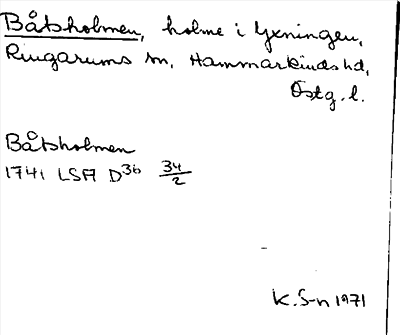 Båtsholmen, holme i Yxningen,
Ringarums sn, Hammarkinds hd,
Östg. l.
Båtsholmen
1741 LSA D36 34/2
K. S-n 1971